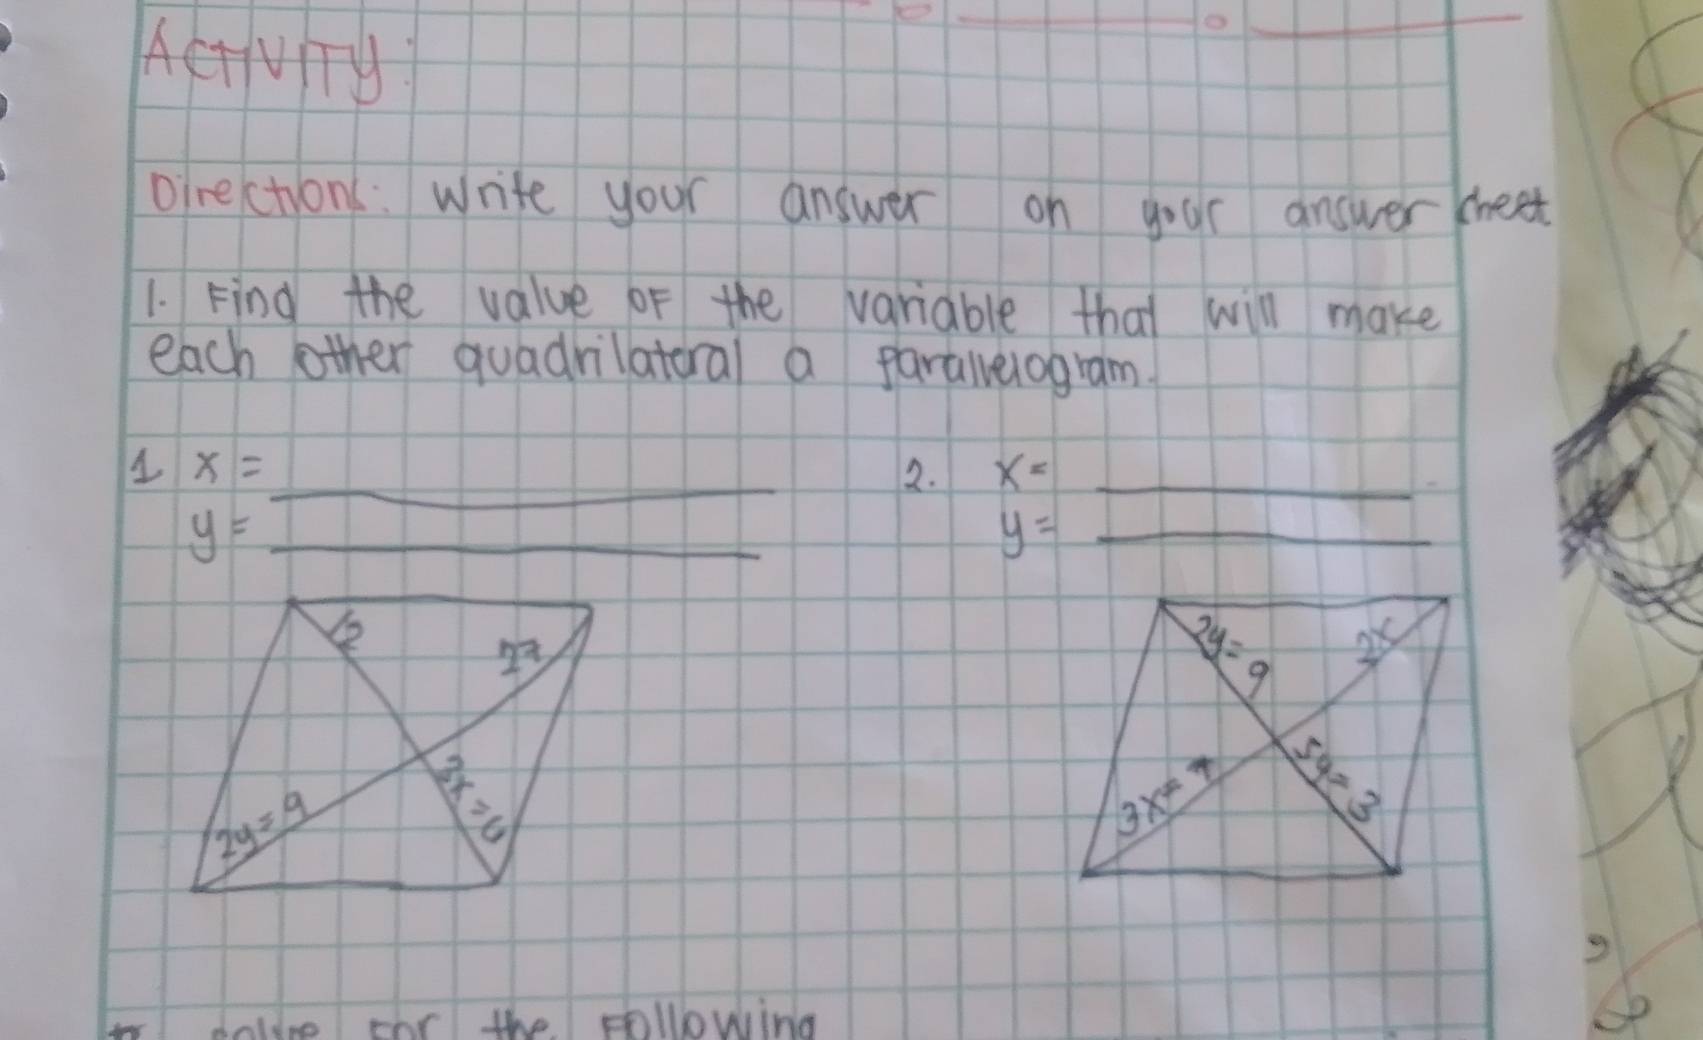 ACTIVITY:
Directions: Write your answer on your answer cheet
1. Find the value OF the variable that will make
each other quadrilateral a parallelogram.
1 x =
y =
2. x =
y =
12
27
2y = 9
3x = 6
2y = 9
2x
3x = 7
5y = 3
solve For the Following